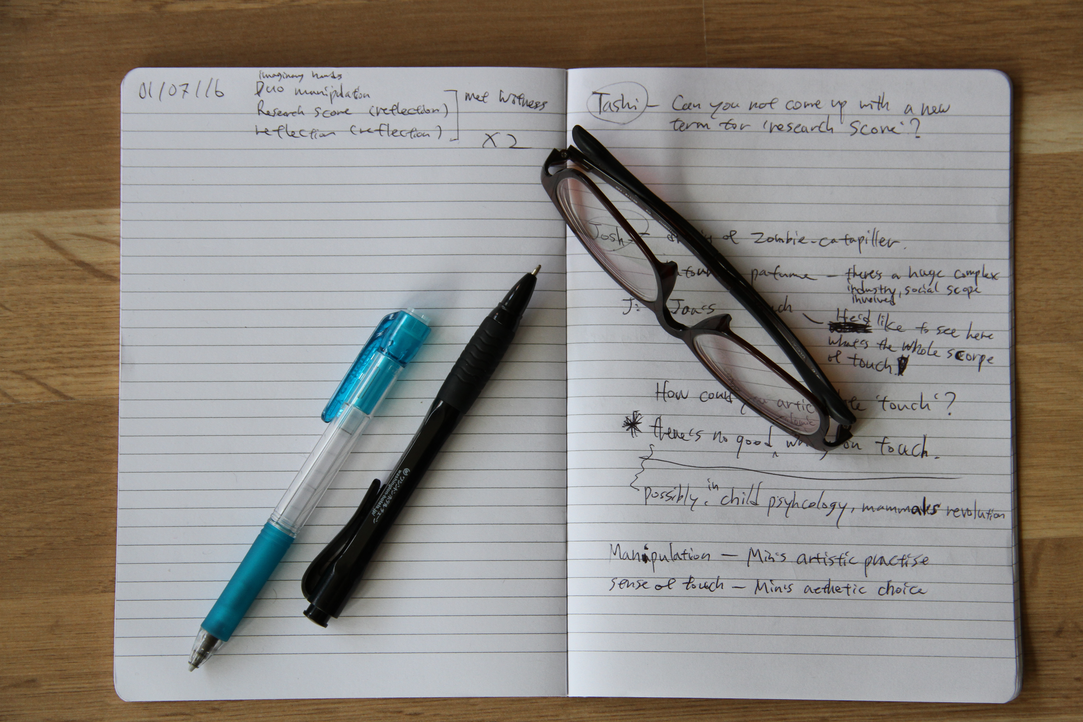 01/07/16
Imaginary hands
Duo manipulation
Research score (reflection)
reflection (reflection)
met witness
X2
Tashi – Can you not come up with a new
term for 'research score'?
Josh – of Zombie-catapiller.
perfume – there's a huge complex
industry, social scope
involved
Jon's – He'd like to see here
what's the whole scope
of touch
How could you 'touch'?
* there's no good on touch.
possibly in child psyhcology, mammals revolution
Manipulation – Min's artistic practise
sense of touch – Min's aethetic choice